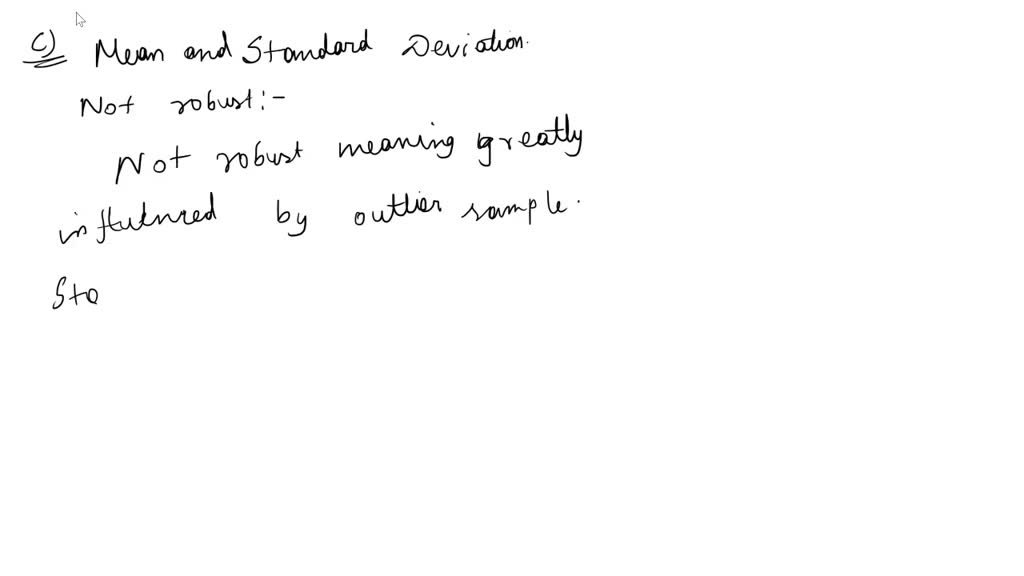 c) Mean and Standard Deviation.
Not robust:-
Not robust meaning greatly
influenced by outlier sample.
Sta